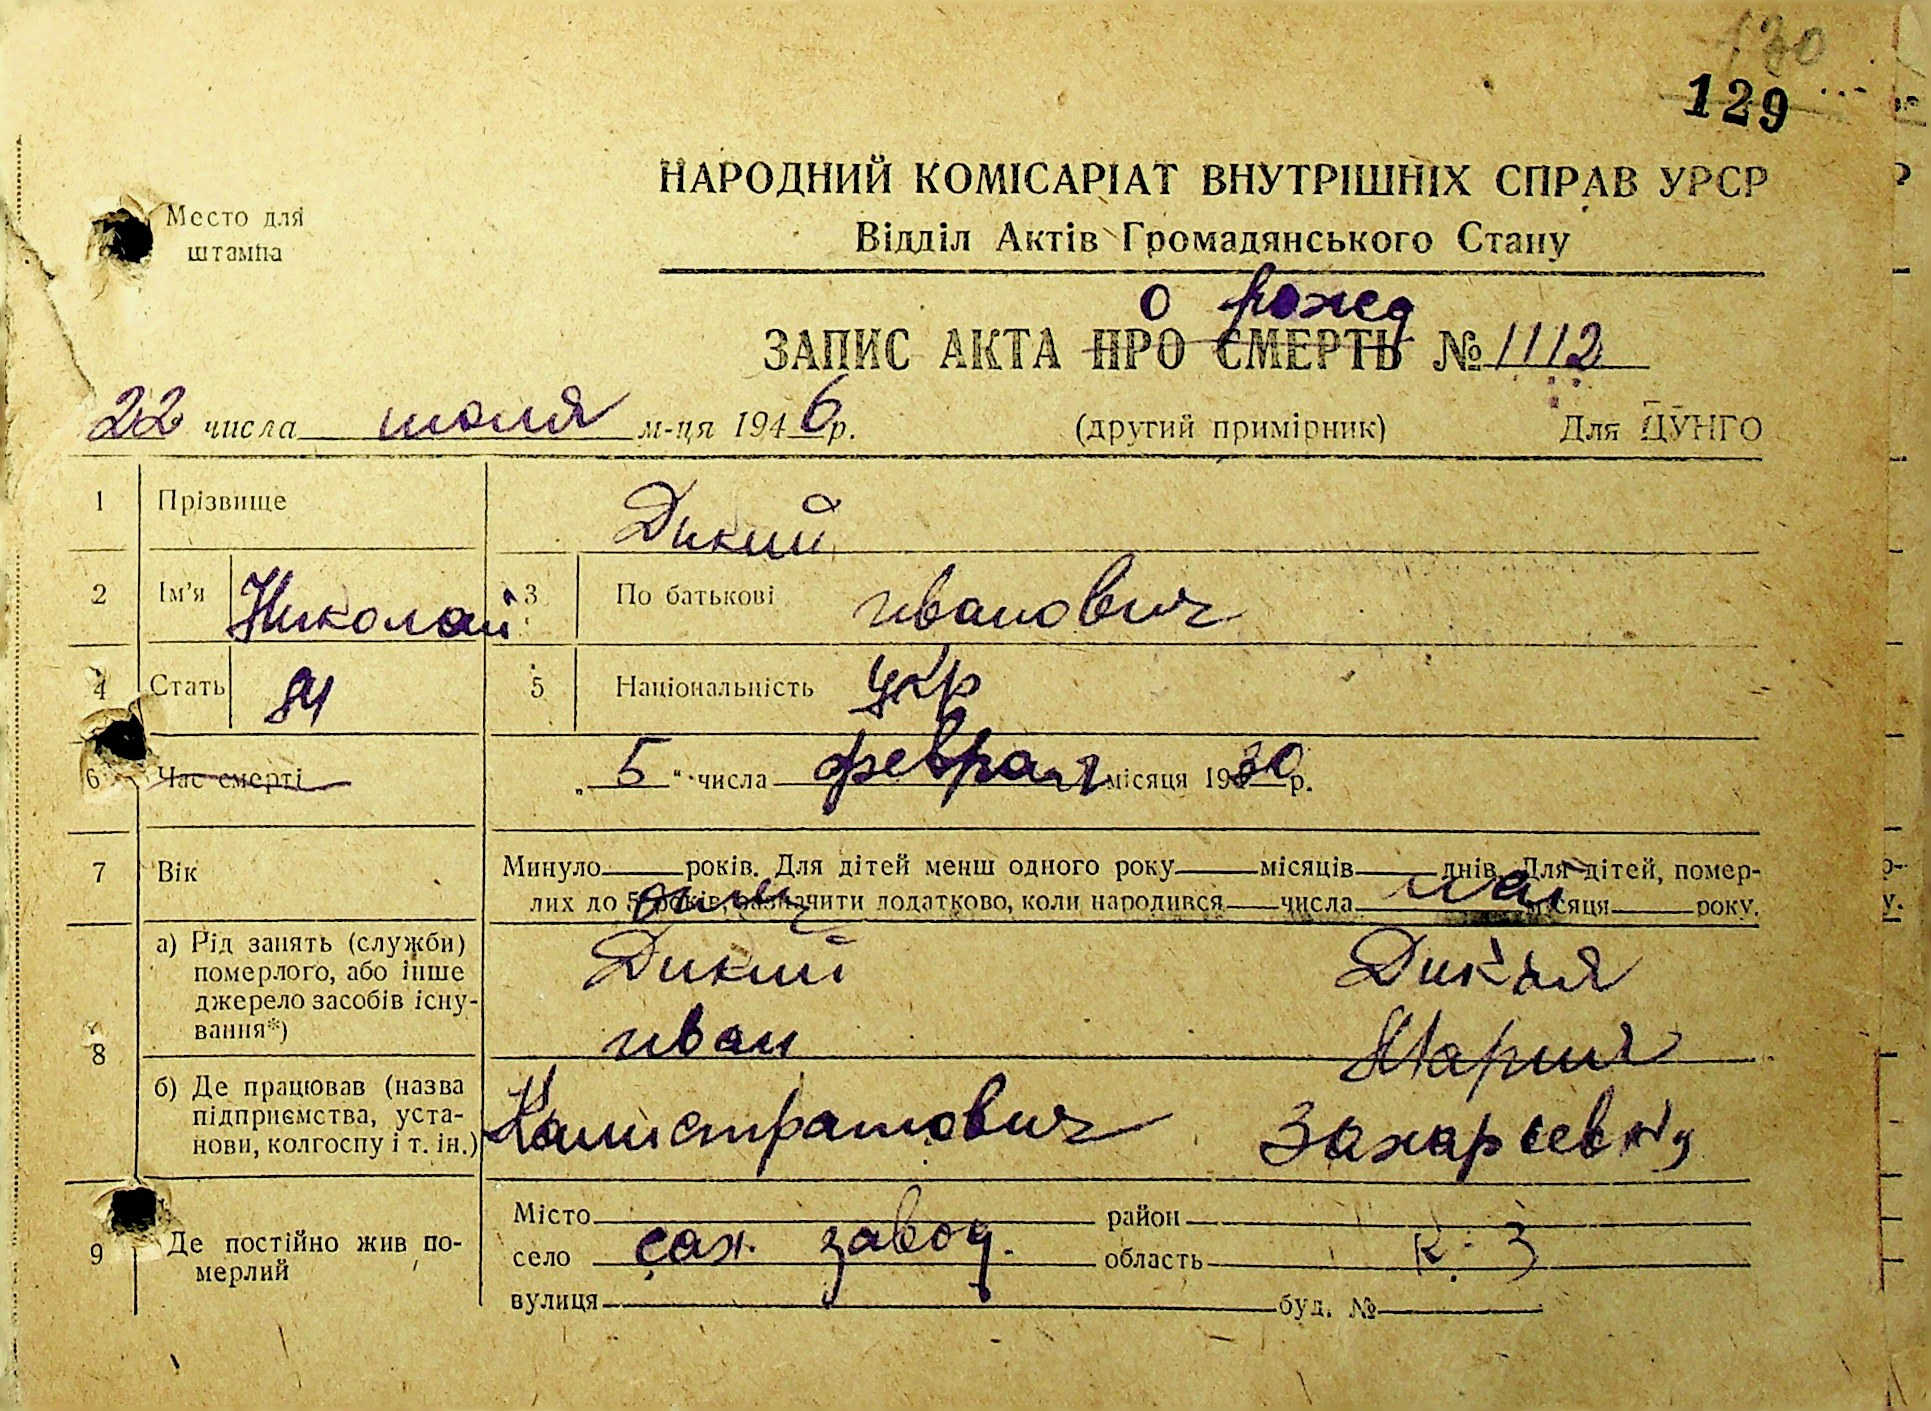 129
НАРОДНИЙ КОМІСАРІАТ ВНУТРІШНІХ СПРАВ УРСР
Место для штампа
Відділ Актів Громадянського Стану
о рожд
ЗАПИС АКТА ПРО СМЕРТЬ № 1112
22 числа июля м-ця 1946 р. (другий примірник) Для ЦУНГО
1 Прізвище Дикий
2 Ім'я Николай 3 По батькові иванович
4 Стать 5 Національність укр
6 Час смерті „5" числа февраля місяця 1930 р.
7 Вік Минуло років. Для дітей менш одного року місяців днів. Для дітей, помер-
лих до 5 років, зазначити додатково, коли народився числа місяця року.
отец мат
8 а) Рід занять (служби) померлого, або інше джерело засобів існу-вання*)
Дикий Дикая
иван Мария
б) Де працював (назва підприємства, уста-нови, колгоспу і т. ін.)
Калистратович Захарьевна
9 Де постійно жив по-мерлий
Місто район
село сах. завод. область К. З
вулиця буд. №